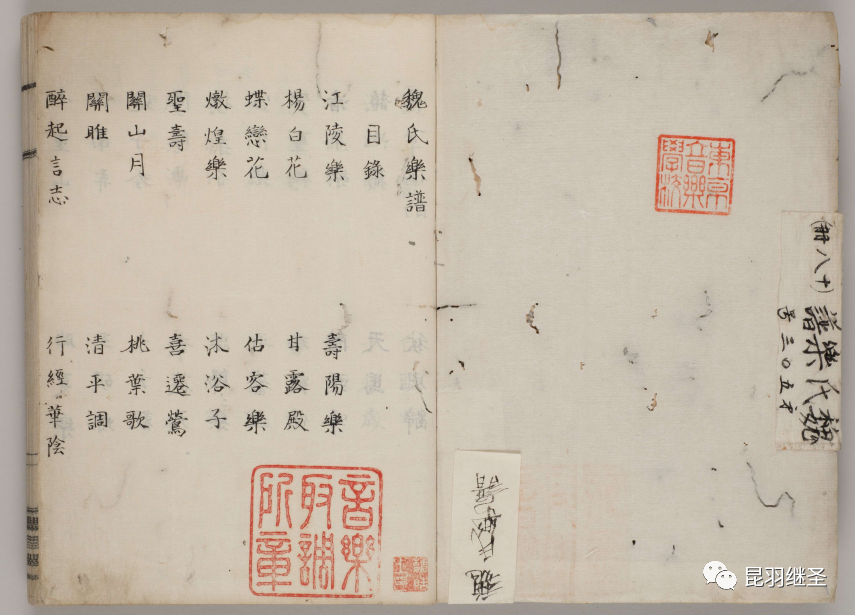 魏氏樂譜
目錄
江陵樂 壽陽樂
楊白花 甘露殿
蝶戀花 估客樂
燉煌樂 沐浴子
聖壽 喜遷鶯
關山月 桃葉歌
關雎 清平調
醉起言志 行經華陰
東京
音樂
學校
音樂
取調
所章
魏氏樂譜
(十八冊)
昆羽继圣